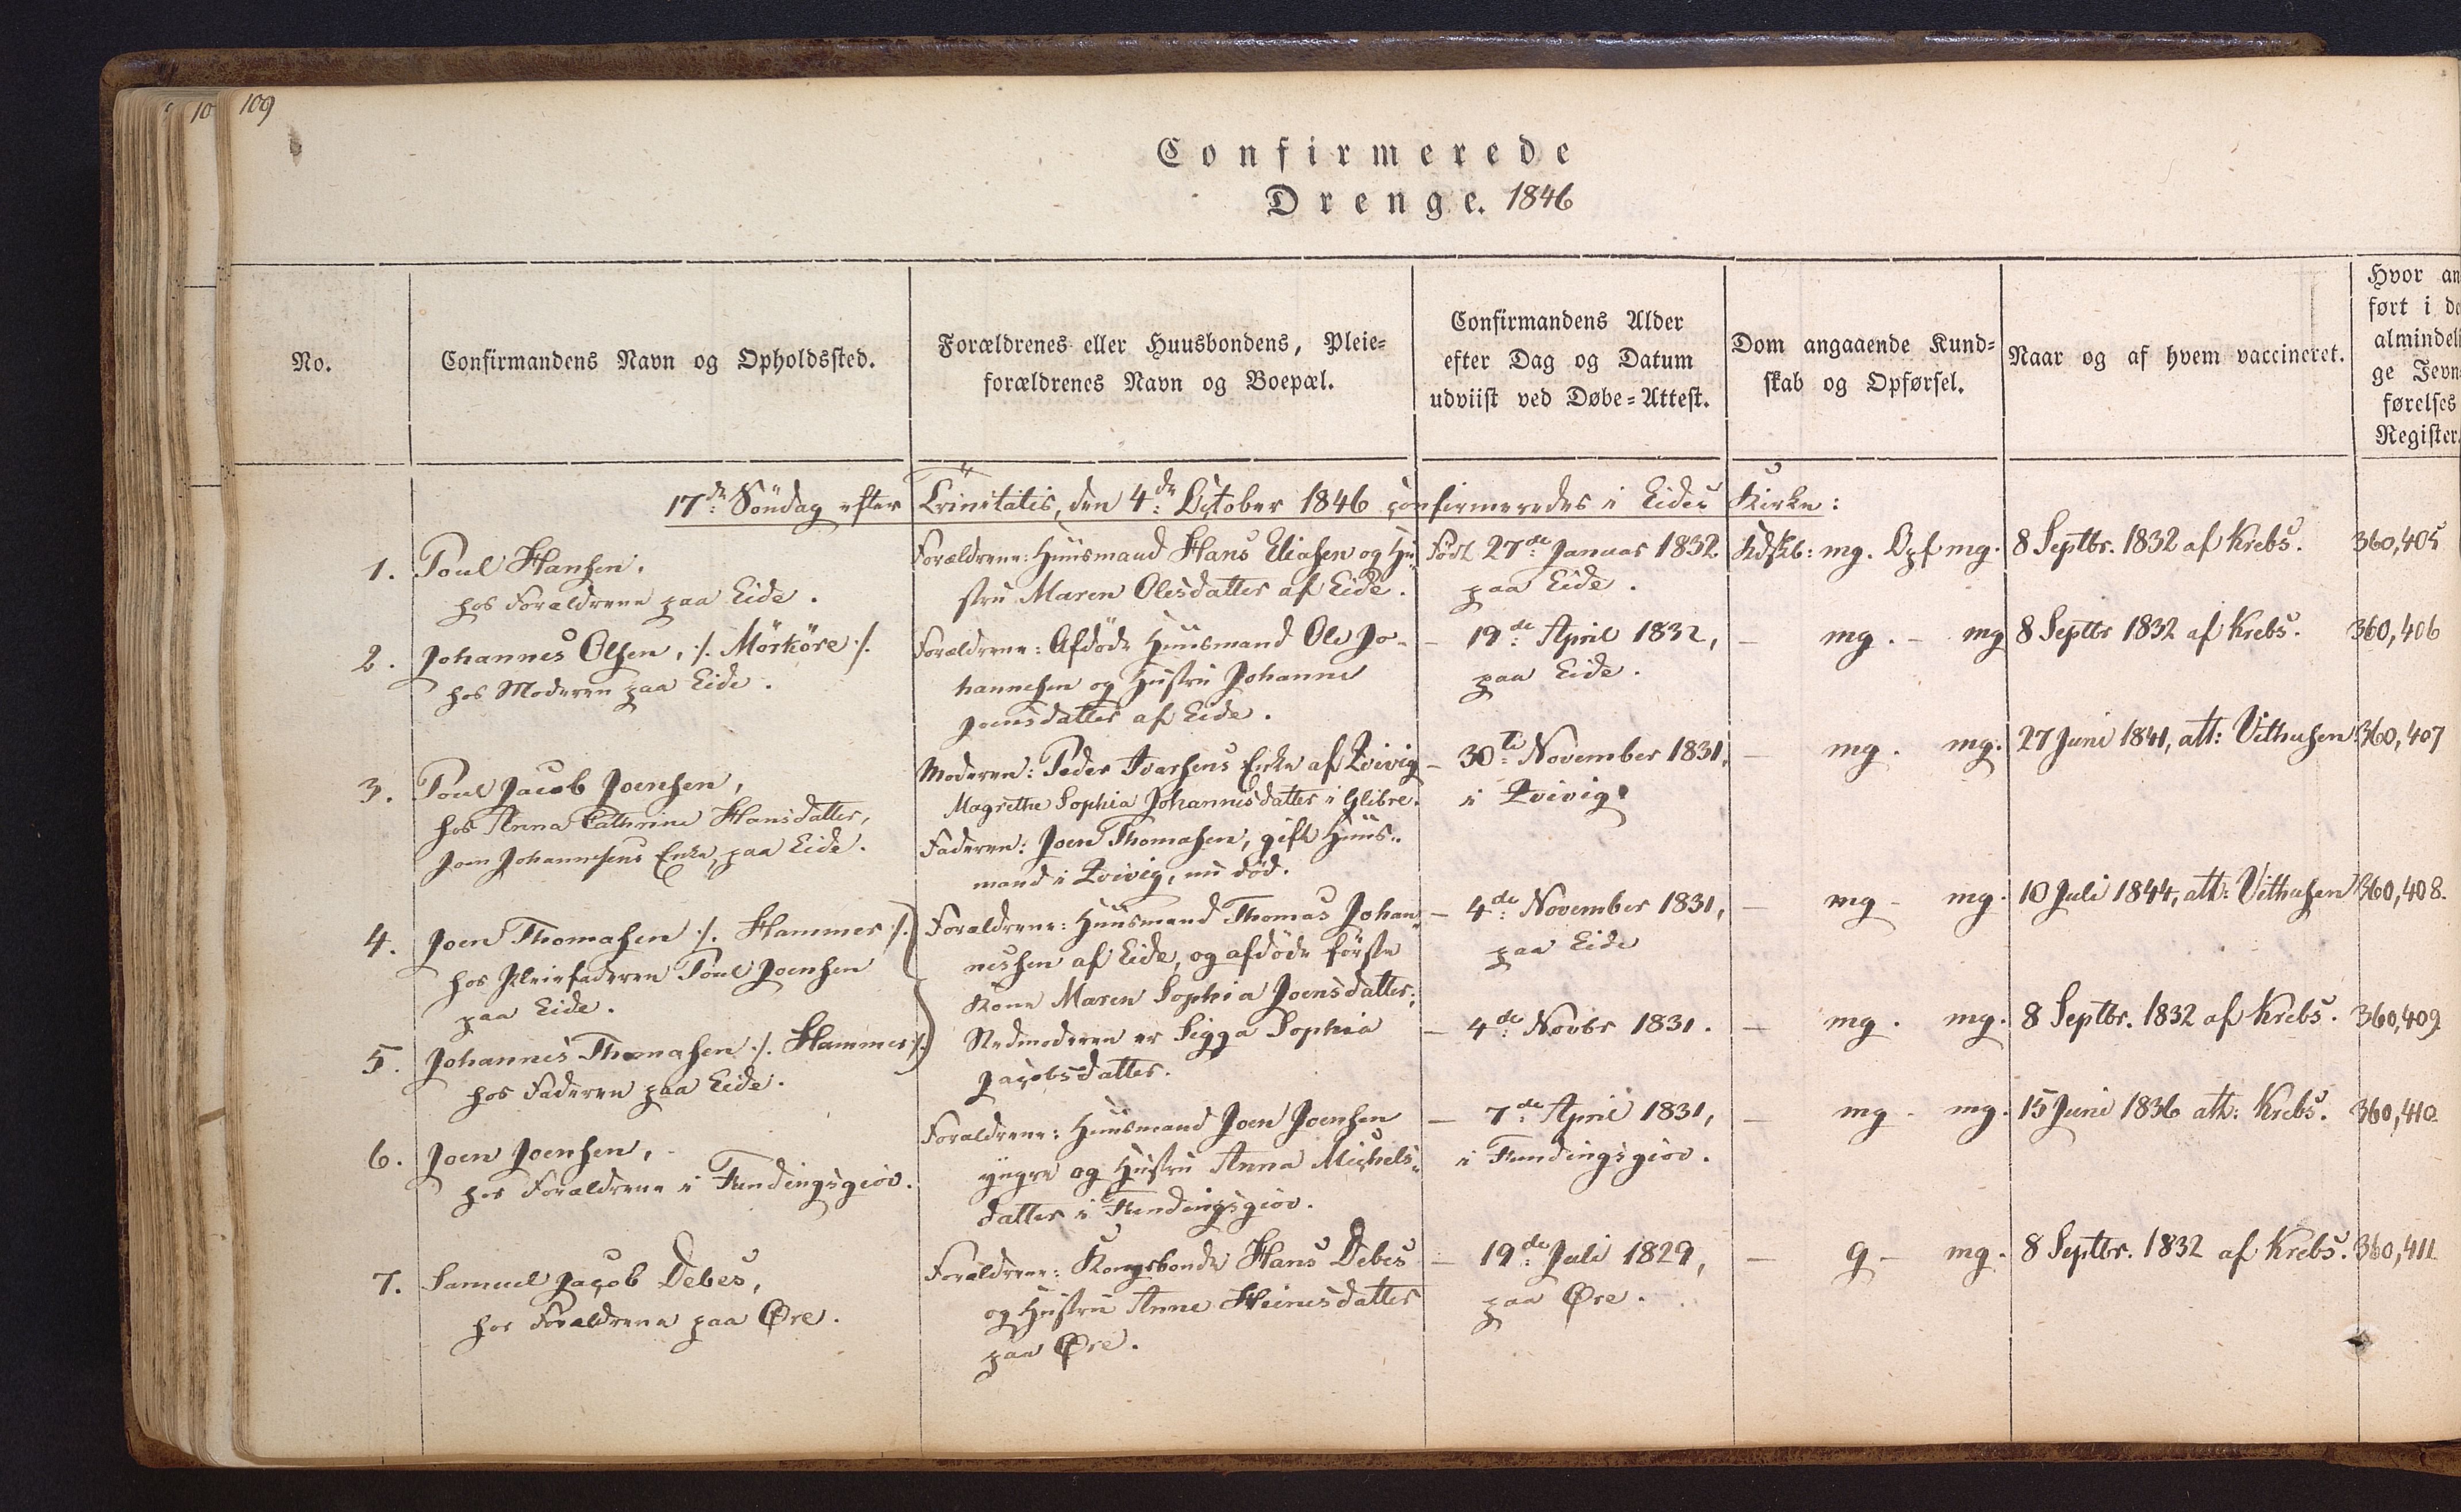 109
10
Confirmerede
Drenge. 1846
No.
Confirmandens Navn og Opholdssted.
Forældrenes eller Huusbondens, Pleie-
forældrenes Navn og Boepæl.
Confirmandens Alder
efter Dag og Datum
udviist ved Døbe-Attest.
Dom angaaende Kund-
skab og Opførsel.
Naar og af hvem vaccineret.
Hvor an
ført i de
almindeli
ge Jevn
førelses
Register.
17de Söndag efter Trinitatis, den 4de October 1846 confirmeredes i Eides Kirke:
1. Poul Hansen,
hos Forældrene paa Eide.
Forældrene: Huusmand Hans Eliasen og Hu-
stru Maren Olesdatter af Eide.
Födt 27de Januar 1832
paa Eide.
Kdskb: mg. Opf mg.
8 Septbr. 1832 af Krebs.
360,405
2. Johannes Olsen, ./. Mörköre ./.
hos Moderen paa Eide.
Forældrene: Afdöde Huusmand Ole Jo-
hannesen og Hustru Johanne
Joensdatter af Eide.
– 19de April 1832,
paa Eide.
– mg. – mg
8 Septbr 1832 af Krebs.
360,406
3. Poul Jacob Joensen,
hos Anna Cathrine Hansdatter,
Joen Johannesens Enke, paa Eide.
Moderen: Peder Ivarsens Enke af Qvivig
Magrethe Sophia Johannesdatter i Glibre.
Faderen: Joen Thomasen, gift Huus-
mand i Qvivig, nu död.
– 30te November 1831,
i Qvivig.
– mg. mg.
27 Juni 1841, att: Vithusen
360,407
4. Joen Thomasen ./. Hammer ./.
hos Pleiefaderen Poul Joensen
paa Eide.
Forældrene: Huusmand Thomas Johan-
nesen af Eide, og afdöde förste
Kone Maren Sophia Joensdatter;
Stedmoderen er Sigga Sophia
Jacobsdatter.
– 4de November 1831,
paa Eide
– mg – mg.
10 Juli 1844, att: Vithusen
360,408.
5. Johannes Thomasen ./. Hammer ./.
hos Faderen paa Eide.
– 4de Novbr 1831.
– mg. mg.
8 Septbr. 1832 af Krebs.
360,409
6. Joen Joensen,
hos Forældrene i Fundingsgiov.
Forældrene: Huusmand Joen Joensen
yngre og Hustru Anna Michels-
datter i Fundingsgiov.
– 7de April 1831,
i Fundingsgiov.
– mg – mg.
15 Juni 1836 att: Krebs.
360,410
7. Samuel Jacob Debes,
hos Forældrene paa Øre.
Forældrene: Kongsbonde Hans Debes
og Hustru Anne Heinesdatter
paa Øre.
– 19de Juli 1829,
paa Øre.
– g – mg.
8 Septbr. 1832 af Krebs.
360,411